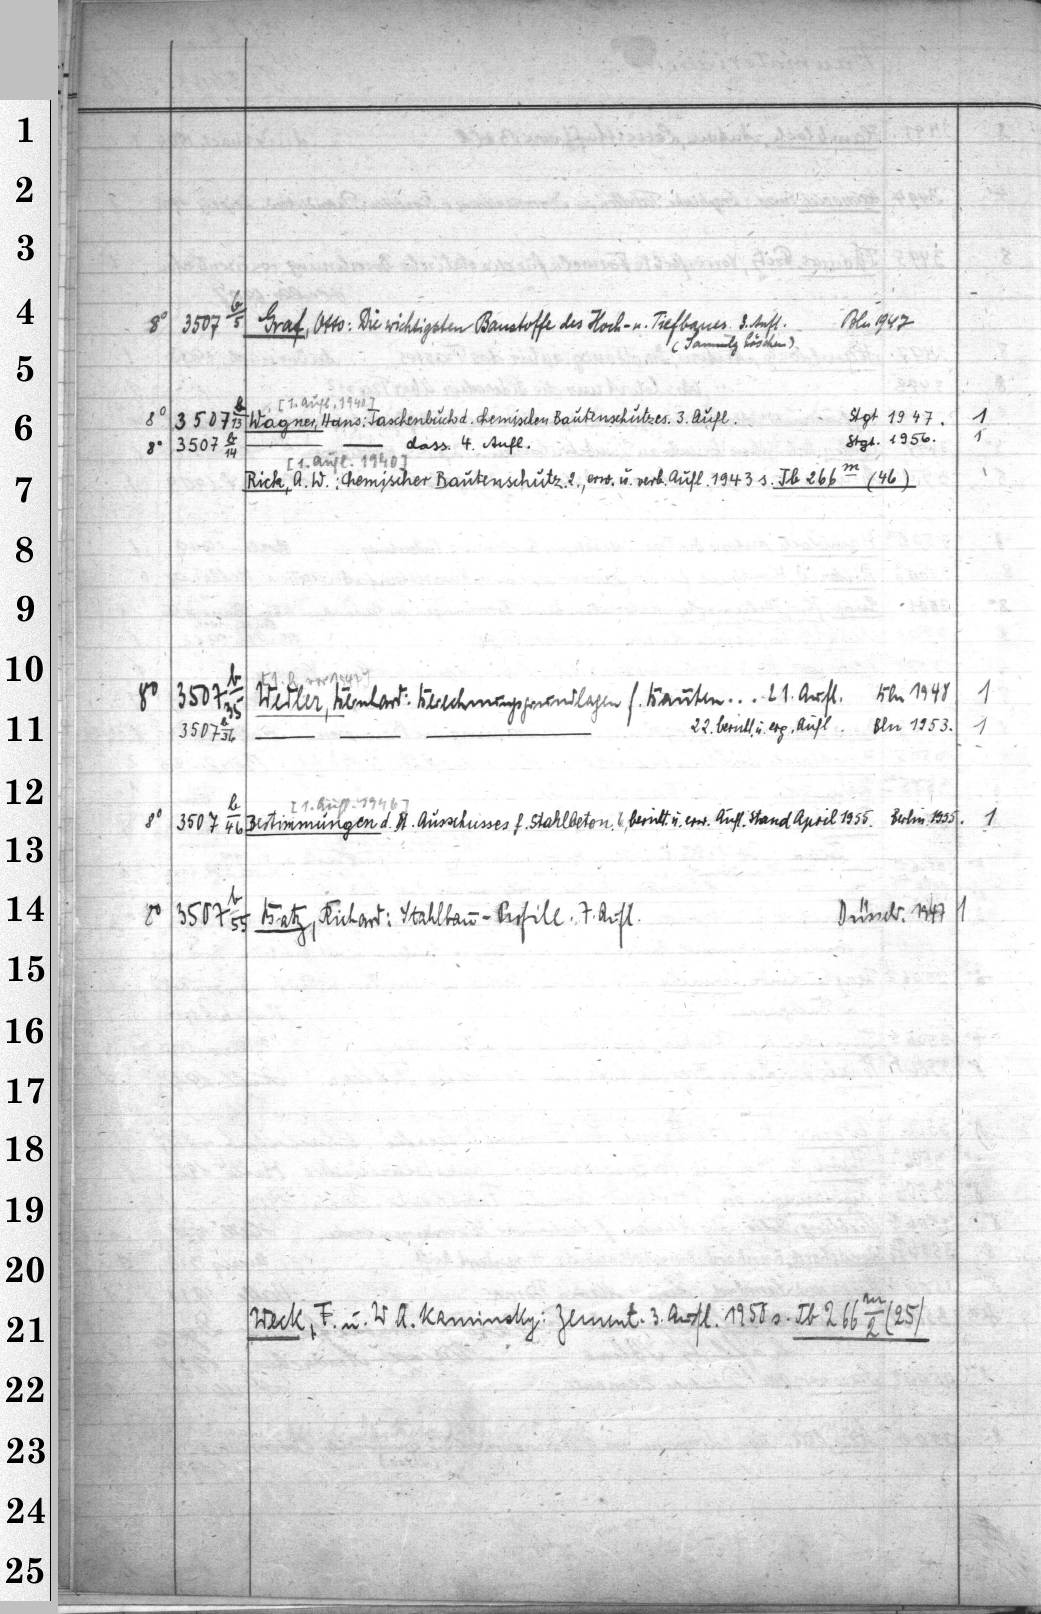 1
2
3
8° 3507 b/5 Graf, Otto: Die wichtigsten Baustoffe des Hoch- u. Tiefbaues. 3. Aufl. Bln 1947
4
(Sammlg Göschen)
5
[1. Aufl. 1940]
8° 3507 b/13 Wagner, Hans: Taschenbuch d. chemischen Bautenschutzes. 3. Aufl. Stgt 1947. 1
6
8° 3507 b/14 dass. 4. Aufl. Stgt. 1956. 1
[1. Aufl. 1940]
Rick, A. W.: Chemischer Bautenschutz. 2., erw. u. verb. Aufl. 1943 s. Ib 266 m (46)
7
8
9
10
8° 3507 b/35 Wedler, Bernhard: Berechnungsgrundlagen f. Bauten... 21. Aufl. Bln 1948 1
3507 b/36 22. bericht. u. erg. Aufl. Bln 1953. 1
11
12
[1. Aufl. 1946]
8° 3507 b/46 Bestimmungen d. Dt. Ausschusses f. Stahlbeton. 6., bericht. u. erw. Aufl. Stand April 1955. Berlin 1955. 1
13
14
8° 3507 b/55 Batz, Richard: Stahlbau-Profile. 7. Aufl. Düsseld. 1947 1
15
16
17
18
19
20
Weck, F. u. W. A. Kaminsky: Zement. 3. Aufl. 1950 s. Ib 266 m/2 (25)
21
22
23
24
25